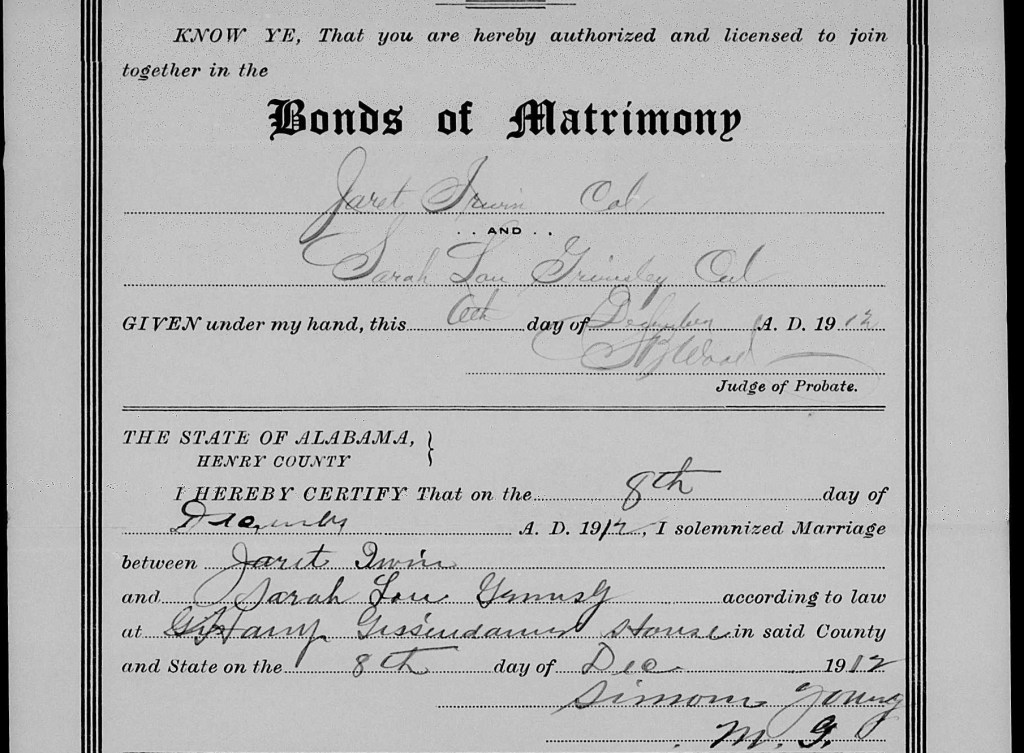 KNOW YE, That you are hereby authorized and licensed to join
together in the
Bonds of Matrimony
Jaret Irwin Col
. . AND . .
Sarah Lou Grimsley Col
GIVEN under my hand, this 6th day of December A. D. 1912
Wood
Judge of Probate.
THE STATE OF ALABAMA, }
HENRY COUNTY
I HEREBY CERTIFY That on the 8th day of
A. D. 1912, I solemnized Marriage
between Jaret Irwin
and Sarah Lou according to law
at House in said County
and State on the 8th day of Dec 1912
Simon Young
M. G.